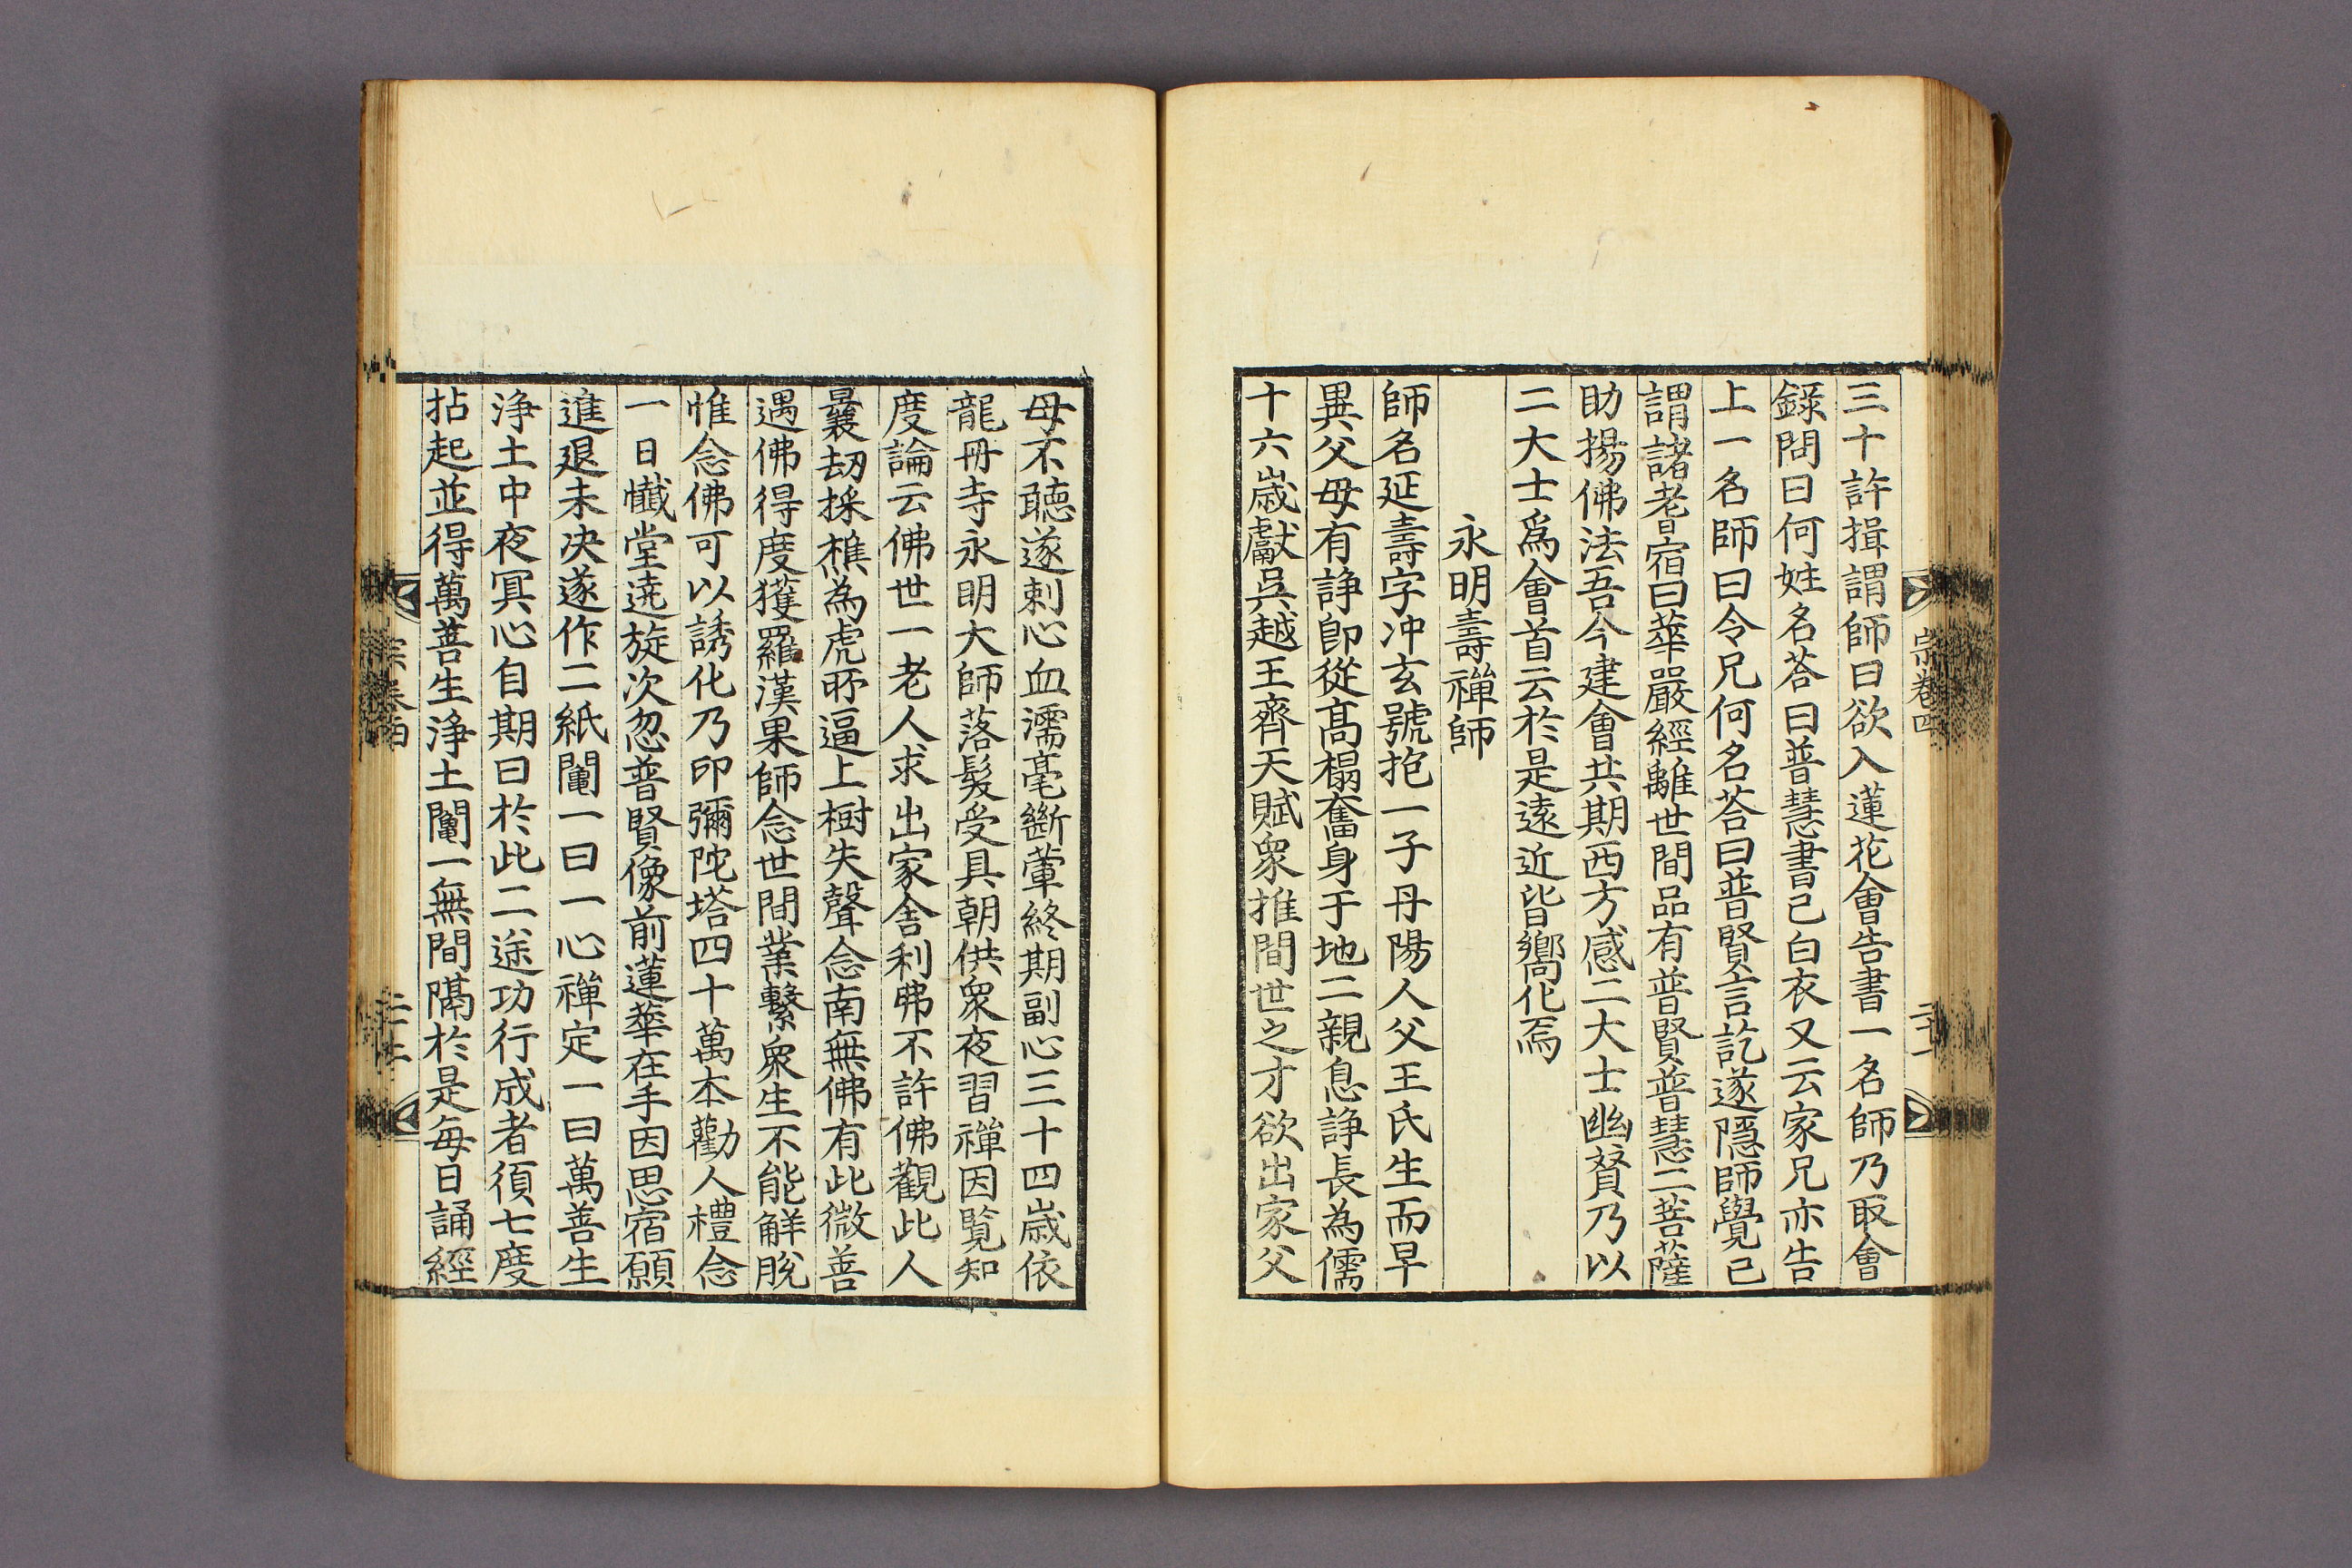 三十許揖謂師曰欲入蓮花會告書一名師乃取會
錄問曰何姓名荅曰普慧書已白衣又云家兄亦告
上一名師曰令兄何名荅曰普賢言訖遂隱師覺已
謂諸耆宿曰華嚴經離世間品有普賢普慧二菩薩
助揚佛法吾今建會共期西方感二大士幽贊乃以
二大士爲會首云於是遠近皆嚮化焉
永明壽禪師
師名延壽字冲玄號抱一子丹陽人父王氏生而早
異父母有諍卽從髙榻奮身于地二親息諍長為儒
十六歲獻吳越王齊天賦衆推間世之才欲出家父
母不聽遂刺心血濡毫斷葷終期副心三十四歲依
龍冊寺永明大師落髮受具朝供衆夜習禪因覽知
度論云佛世一老人求出家舍利弗不許佛觀此人
曩劫採樵為虎所逼上樹失聲念南無佛有此微善
遇佛得度獲羅漢果師念世間業繫衆生不能解脫
惟念佛可以誘化乃印彌陀塔四十萬本勸人禮念
一日懺堂遶旋次忽普賢像前蓮華在手因思宿願
進退未決遂作二紙鬮一曰一心禪定一曰萬善生
淨土中夜冥心自期曰於此二途功行成者須七度
拈起並得萬善生淨土鬮一無間隔於是每日誦經
宗卷四